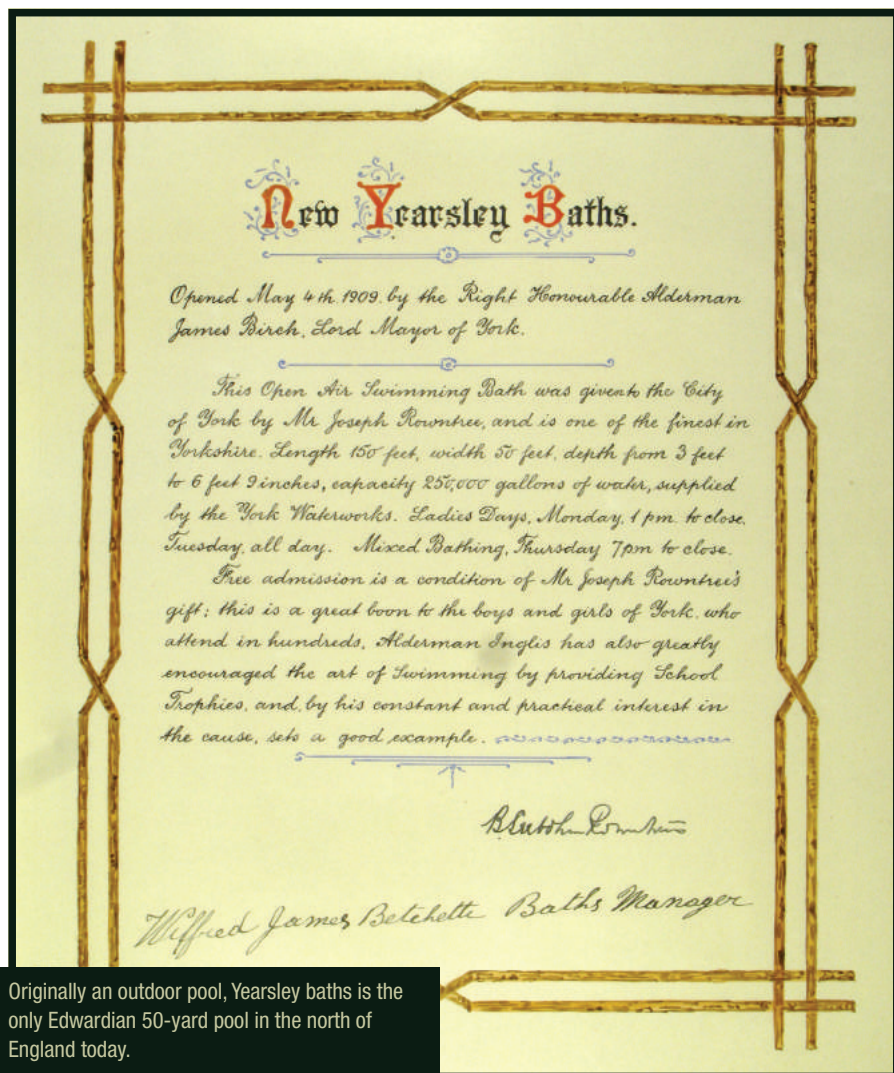 New Yearsley Baths.
Opened May 4th 1909. by the Right Honourable Alderman
James Birch, Lord Mayor of York.
This Open Air Swimming Bath was given to the City
of York by Mr Joseph Rowntree, and is one of the finest in
Yorkshire. Length 150 feet, width 50 feet, depth from 3 feet
to 6 feet 9 inches, capacity 250,000 gallons of water, supplied
by the York Waterworks. Ladies Days, Monday, 1 pm. to close.
Tuesday, all day. Mixed Bathing, Thursday 7pm to close.
Free admission is a condition of Mr Joseph Rowntree's
gift; this is a great boon to the boys and girls of York, who
attend in hundreds. Alderman Inglis has also greatly
encouraged the art of Swimming by providing School
Trophies, and, by his constant and practical interest in
the cause, sets a good example.
Wilfred James Betchette Baths Manager
Originally an outdoor pool, Yearsley baths is the
only Edwardian 50-yard pool in the north of
England today.